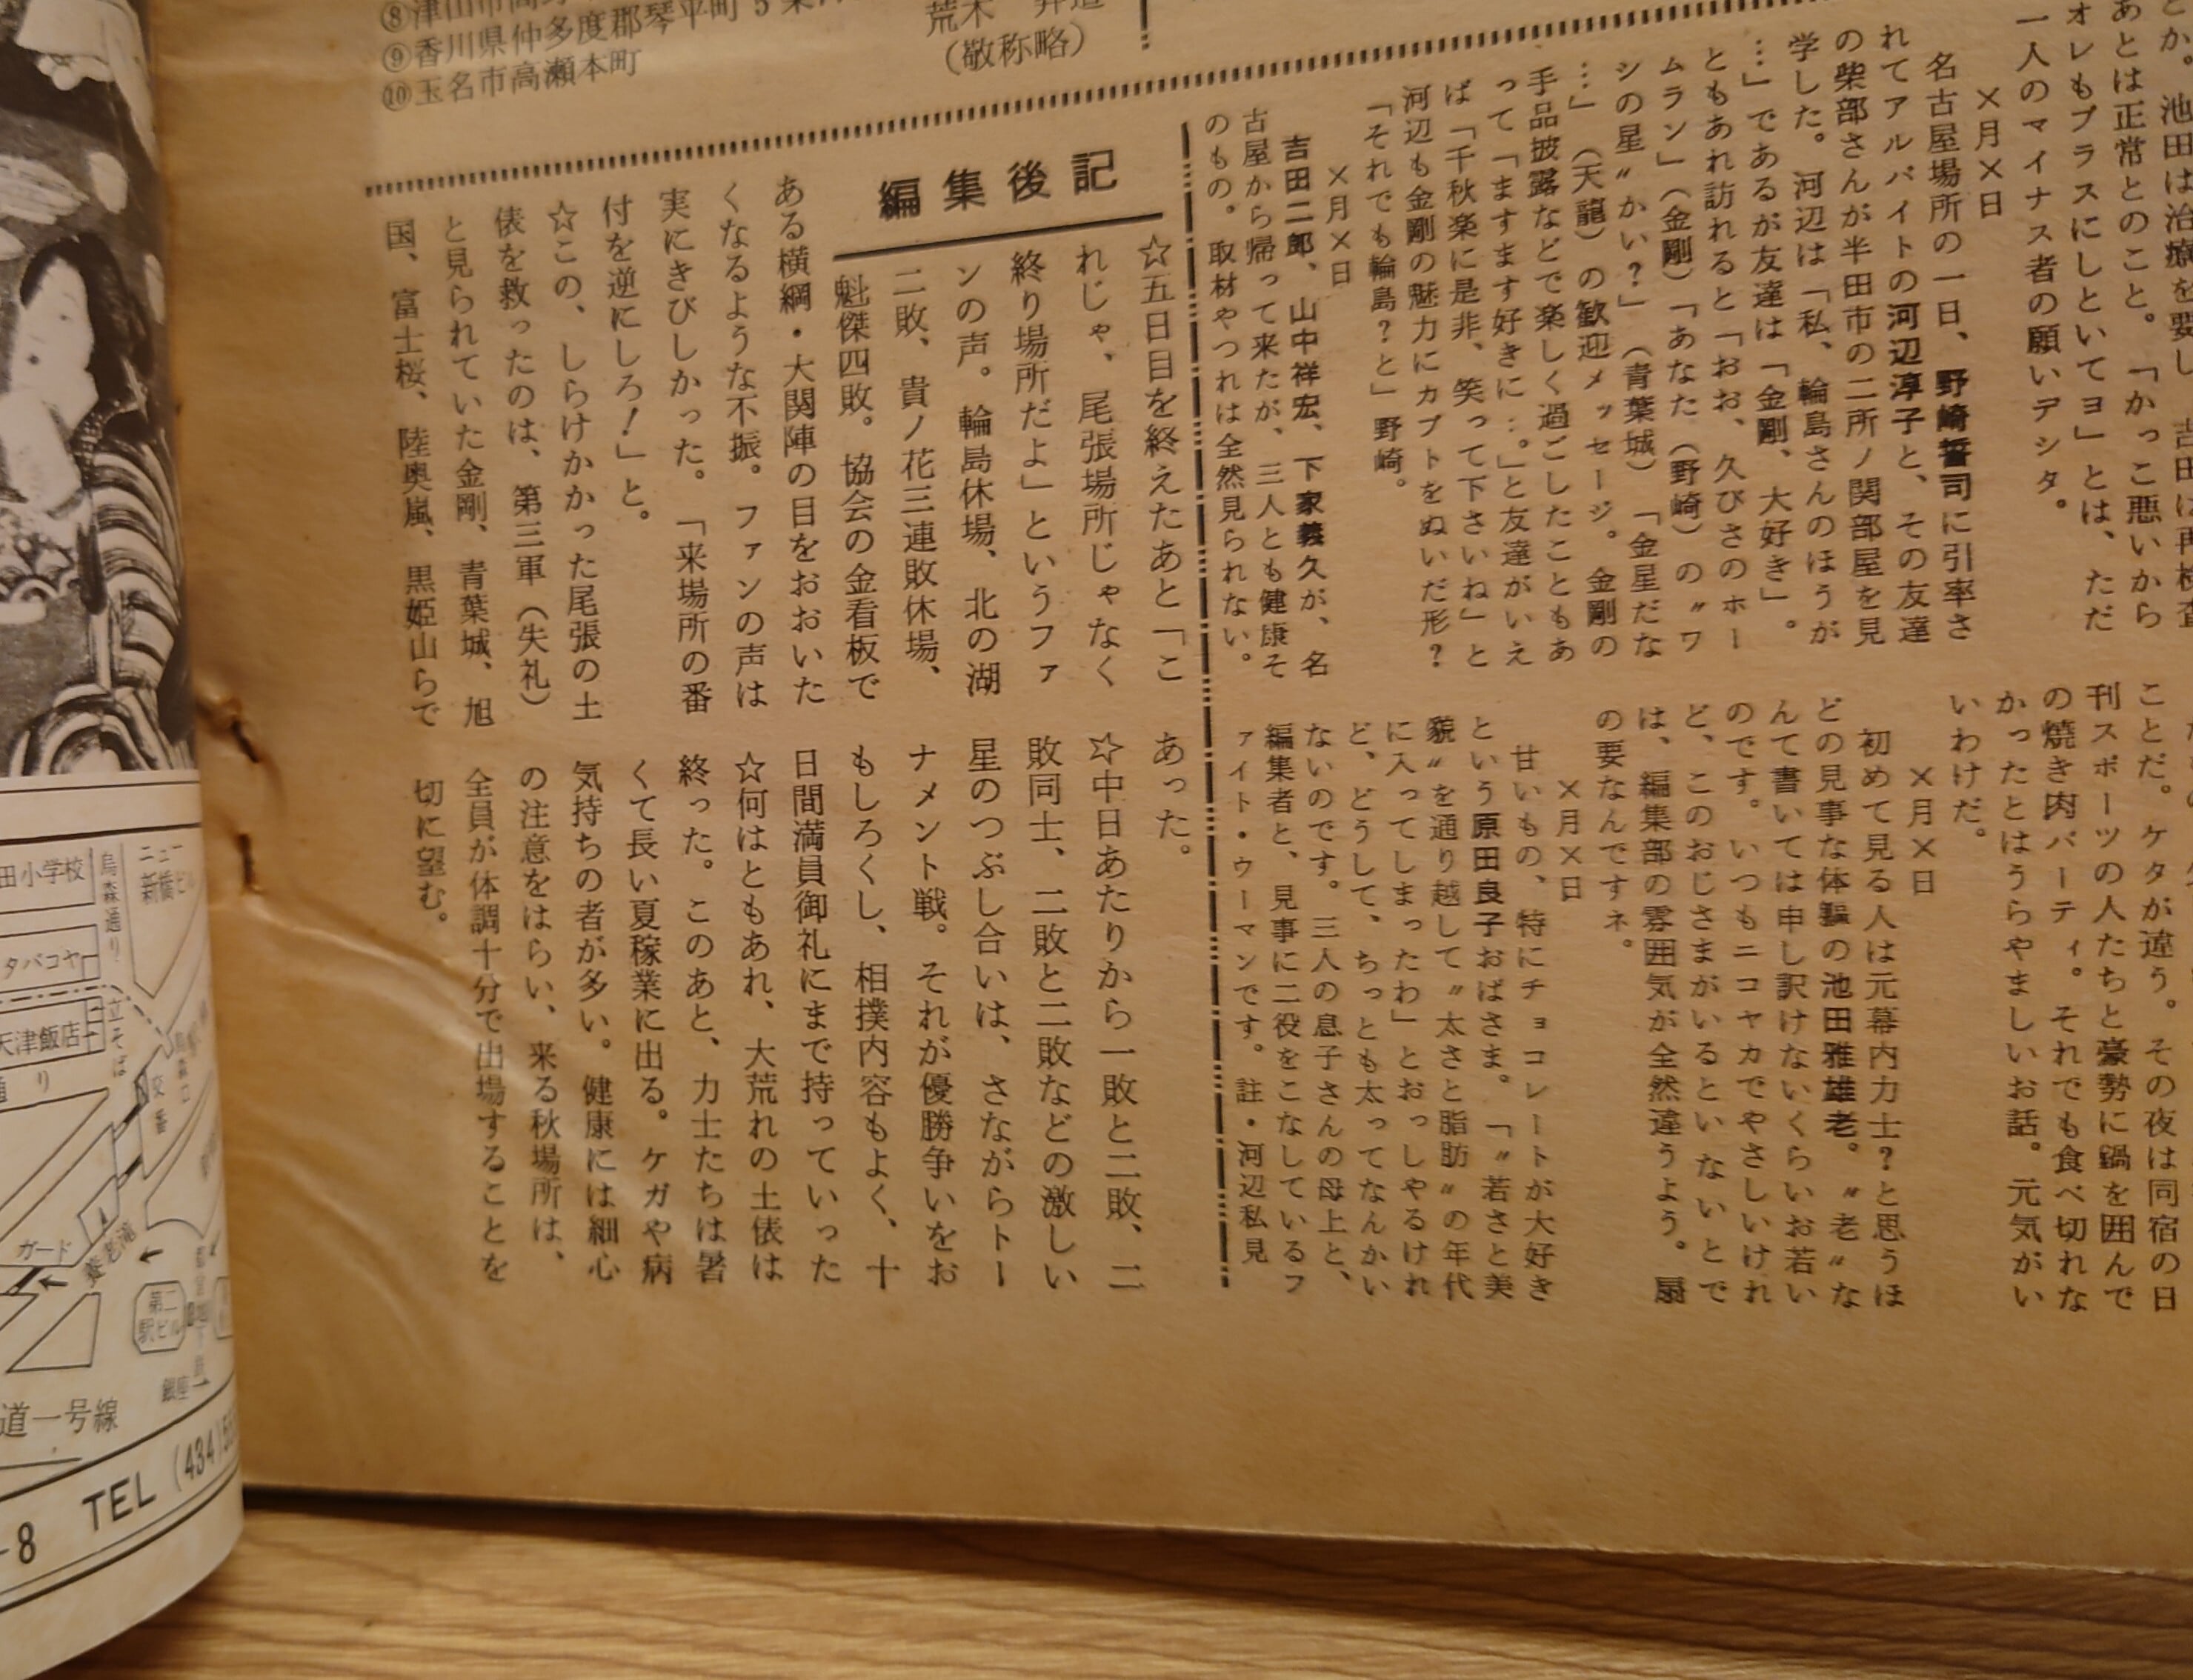 ⑨香川県仲多度郡琴平町5
⑩玉名市高瀬本町
(敬称略)
あとは正常とのこと。「かっこ悪いから
オレもプラスにしといてヨ」とは、ただ
一人のマイナス者の願いデシタ。
×月×日
名古屋場所の一日、野崎誓司に引率さ
れてアルバイトの河辺淳子と、その友達
の柴部さんが半田市の二所ノ関部屋を見
学した。河辺は「私、輪島さんのほうが
…」であるが友達は「金剛、大好き」。
ともあれ訪れると「おお、久びさのホー
ムラン」(金剛)「あなた(野崎)の〝ワ
シの星〟かい?」(青葉城)「金星だな
…」(天龍)の歓迎メッセージ。金剛の
手品披露などで楽しく過ごしたこともあ
って「ますます好きに…。」と友達がいえ
ば「千秋楽に是非、笑って下さいね」と
河辺も金剛の魅力にカブトをぬいだ形?
「それでも輪島?と」野崎。
×月×日
吉田二郎、山中祥宏、下家義久が、名
古屋から帰って来たが、三人とも健康そ
のもの。取材やつれは全然見られない。
ことだ。ケタが違う。その夜は同宿の日
刊スポーツの人たちと豪勢に鍋を囲んで
の焼き肉パーティ。それでも食べ切れな
かったとはうらやましいお話。元気がい
いわけだ。
×月×日
初めて見る人は元幕内力士?と思うほ
どの見事な体軀の池田雅雄老。〝老〟な
んて書いては申し訳けないくらいお若い
のです。いつもニコヤカでやさしいけれ
ど、このおじさまがいるといないとで
は、編集部の雰囲気が全然違うよう。扇
の要なんですネ。
×月×日
甘いもの、特にチョコレートが大好き
という原田良子おばさま。「〝若さと美
貌〟を通り越して〝太さと脂肪〟の年代
に入ってしまったわ」とおっしゃるけれ
ど、どうして、ちっとも太ってなんかい
ないのです。三人の息子さんの母上と、
編集者と、見事に二役をこなしているフ
ァイト・ウーマンです。註・河辺私見
編集後記
☆五日目を終えたあと「こ
れじゃ、尾張場所じゃなく
終り場所だよ」というファ
ンの声。輪島休場、北の湖
二敗、貴ノ花三連敗休場、
魁傑四敗。協会の金看板で
ある横綱・大関陣の目をおおいた
くなるような不振。ファンの声は
実にきびしかった。「来場所の番
付を逆にしろ!」と。
☆この、しらけかかった尾張の土
俵を救ったのは、第三軍(失礼)
と見られていた金剛、青葉城、旭
国、富士桜、陸奥嵐、黒姫山らで
あった。
☆中日あたりから一敗と二敗、二
敗同士、二敗と二敗などの激しい
星のつぶし合いは、さながらトー
ナメント戦。それが優勝争いをお
もしろくし、相撲内容もよく、十
日間満員御礼にまで持っていった
☆何はともあれ、大荒れの土俵は
終った。このあと、力士たちは暑
くて長い夏稼業に出る。ケガや病
気持ちの者が多い。健康には細心
の注意をはらい、来る秋場所は、
全員が体調十分で出場することを
切に望む。
田小学校
烏森通り
ニュー
新橋ビル
タバコヤ
立そば
天津飯店
交番
ガード
養老滝
第二
駅ビル
銀座
道一号線
TEL (434)
-8